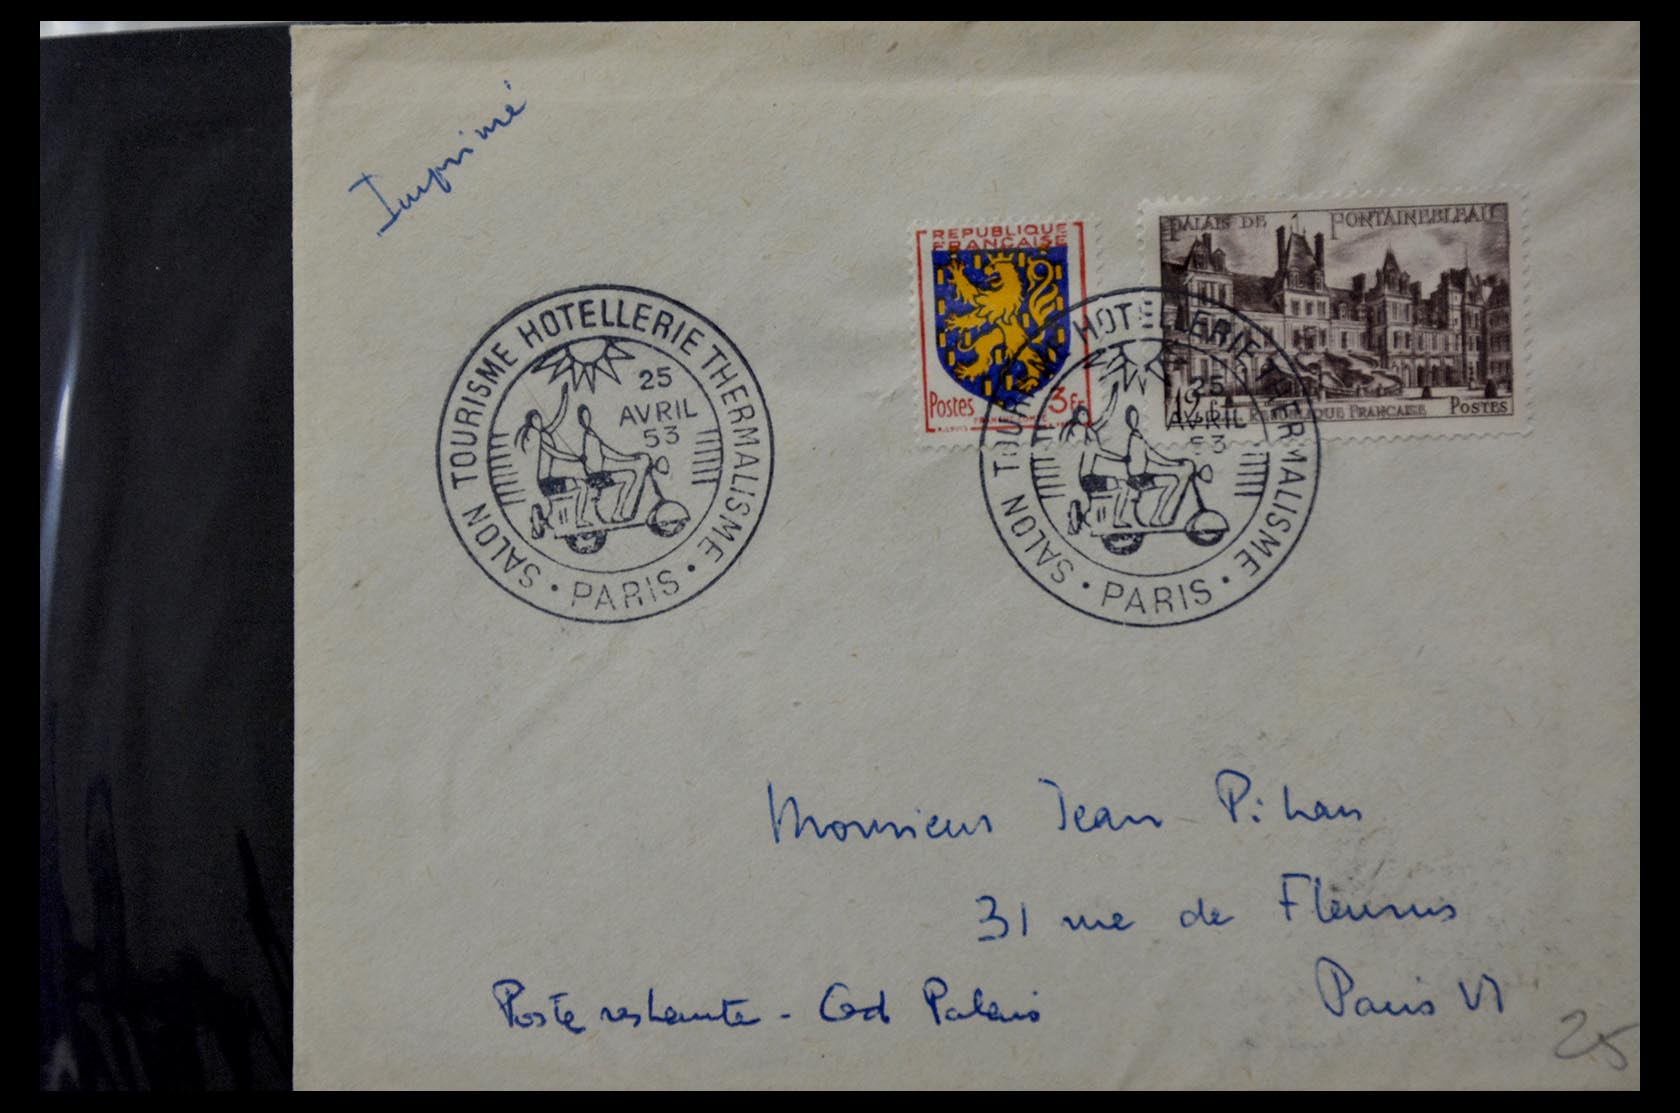 Imprimé
REPUBLIQUE
FRANÇAISE
Postes 3Fr
FRANCHE-COMTÉ
PALAIS DE FONTAINEBLEAU
REPUBLIQUE FRANÇAISE POSTES
SALON TOURISME HOTELLERIE THERMALISME
25
AVRIL
53
• PARIS •
SALON TOURISME HOTELLERIE THERMALISME
25
AVRIL
53
• PARIS •
Monsieur Jean Pihan
31 rue de Fleurus
Poste restante - Palais
Paris VI
25